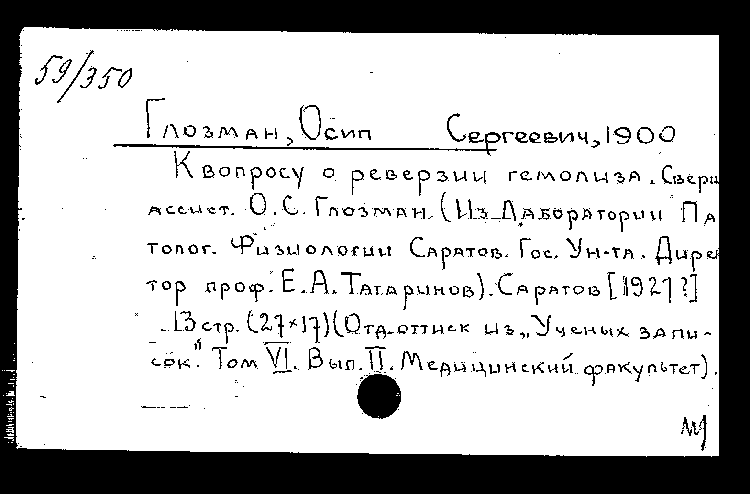 59/350
Глозман, Осип Сергеевич, 1900
К вопросу о реверзии гемолиза. Сверш
ассист. О.С. Глозман. (Из Лаборатории Па
толог. Физиологии Саратов. Гос. Ун-та. Дирек
тор проф. Е.А. Татаринов). Саратов [1927?]
13 стр. (27×17) (Отд. оттиск из „Ученых запи-
сок". Том VI. Вып. II. Медицинский факультет).